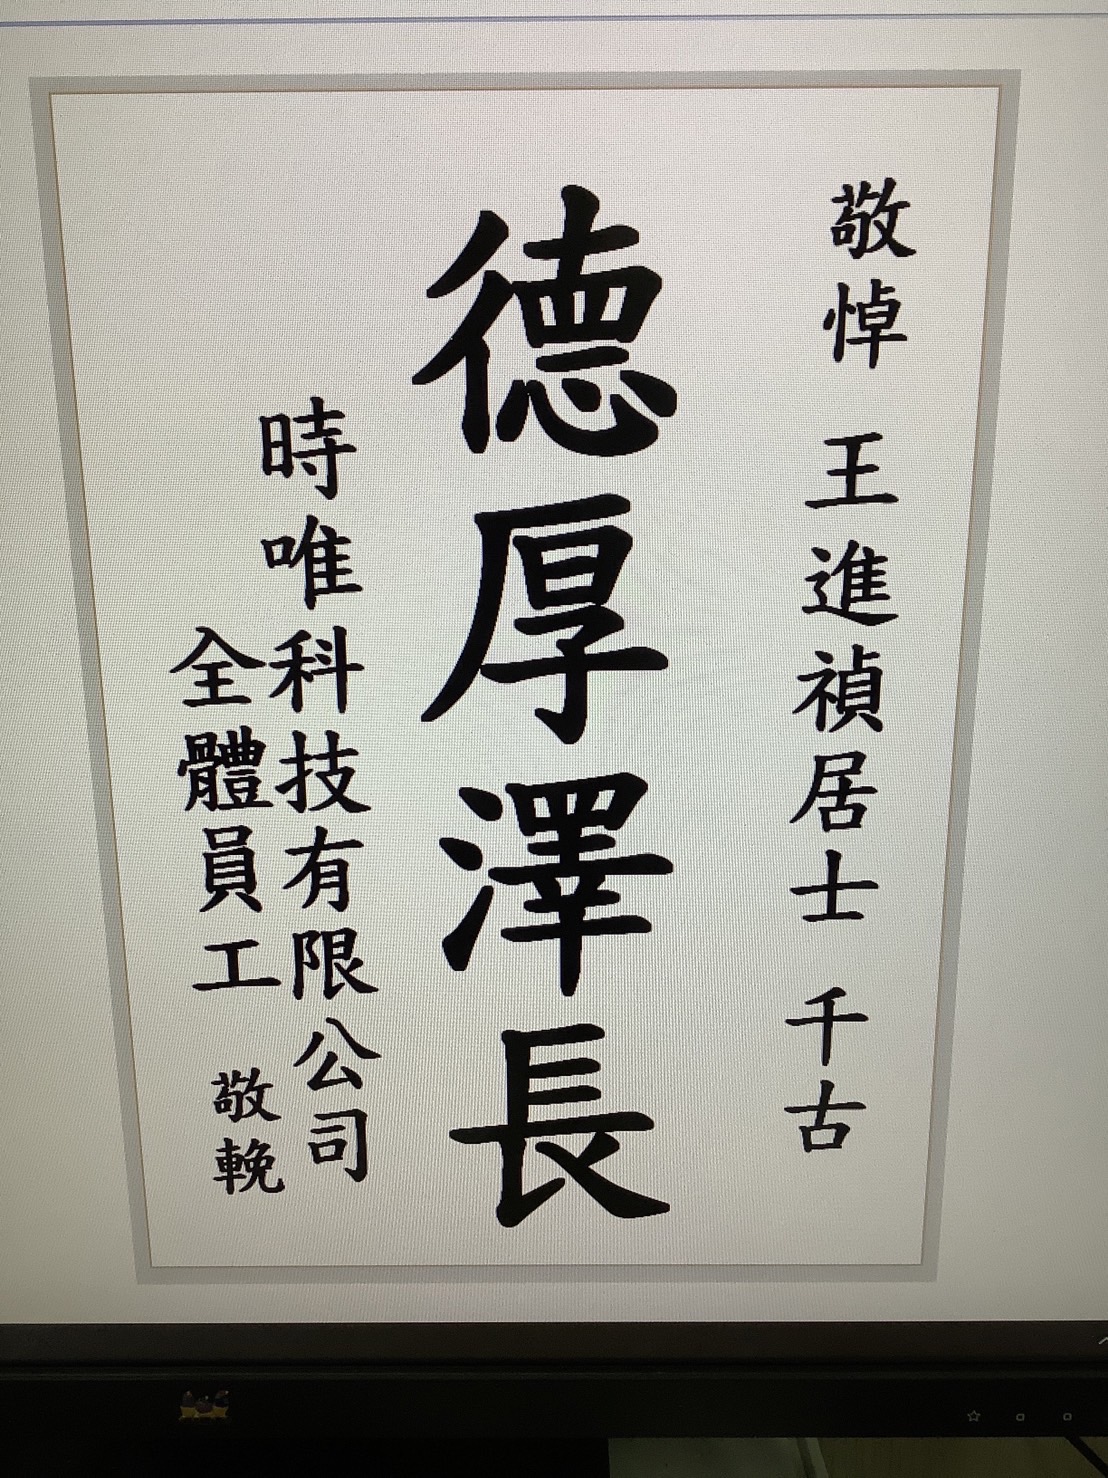 敬悼 王進禎居士 千古
德厚澤長
時唯科技有限公司
全體員工 敬輓